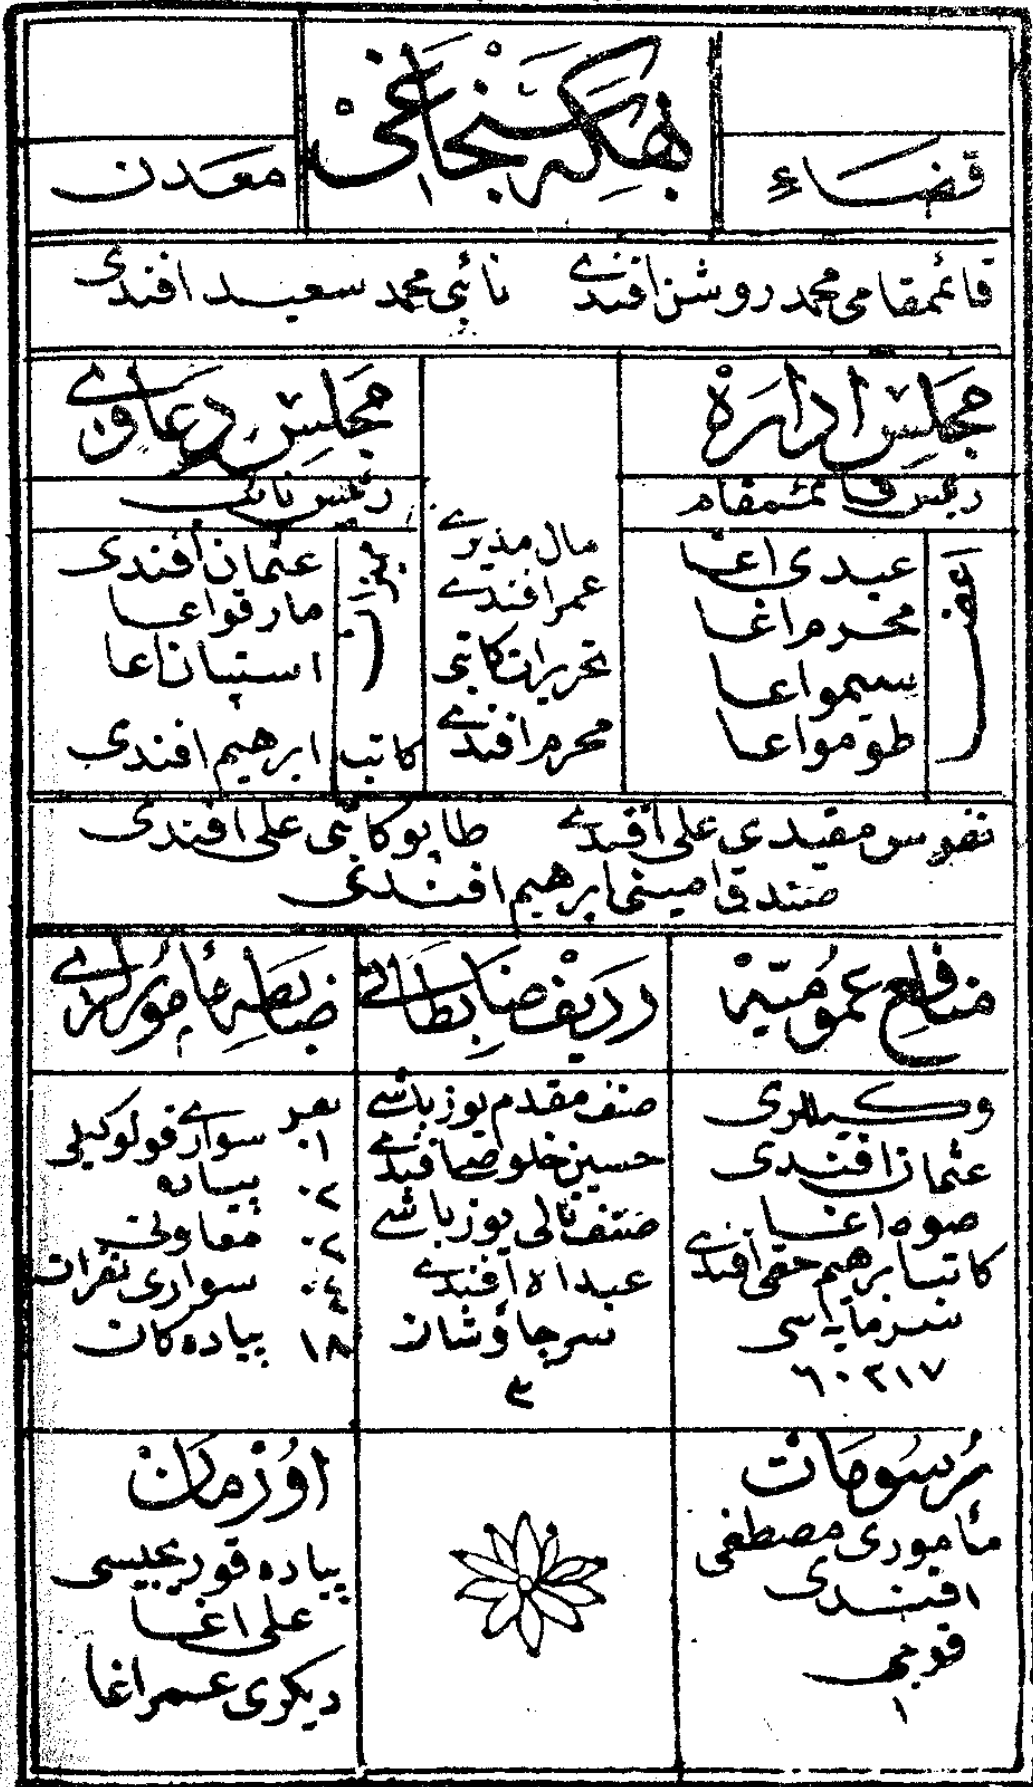 بهكه سنجاغى
قضاء
معدن
قائممقامى محمد روشن افندى نائبى محمد سعيد افندى
مجلس اداره
رئيس قائممقام
اعضا
عبدى اغا
محرم اغا
سيمو اغا
طومو اغا
مال مديرى
عمر افندى
تحريرات كاتبى
محرم افندى
مجلس دعاوى
رئيس نائب
مميز
عثمان افندى
مارقو اغا
استپان اغا
كاتب ابرهيم افندى
نفوس مقيدى على افندى طاپو كاتبى على افندى
صندق امينى ابرهيم افندى
منافع عموميه
وكيللرى
عثمان افندى
صوه اغا
كاتب ابرهيم حقى افندى
سرمايه سى
٦٠٢١٧
رديف ضابطانى
صنف مقدم يوزباشى
حسين خلوصى افندى
صنف تالى يوزباشى
عبدالله افندى
سرجاوشان
٣
ضابطه مأمورلرى
نفر
١ سوارى قول وكيلى
٢٠ پياده
٢٠ معاونى
٤٠ سوارى نفرات
١٨ پياده كان
رسومات
مأمورى مصطفى
افندى
قوجى
١
اورمان
پياده قوريجيسى
على اغا
ديكرى عمر اغا